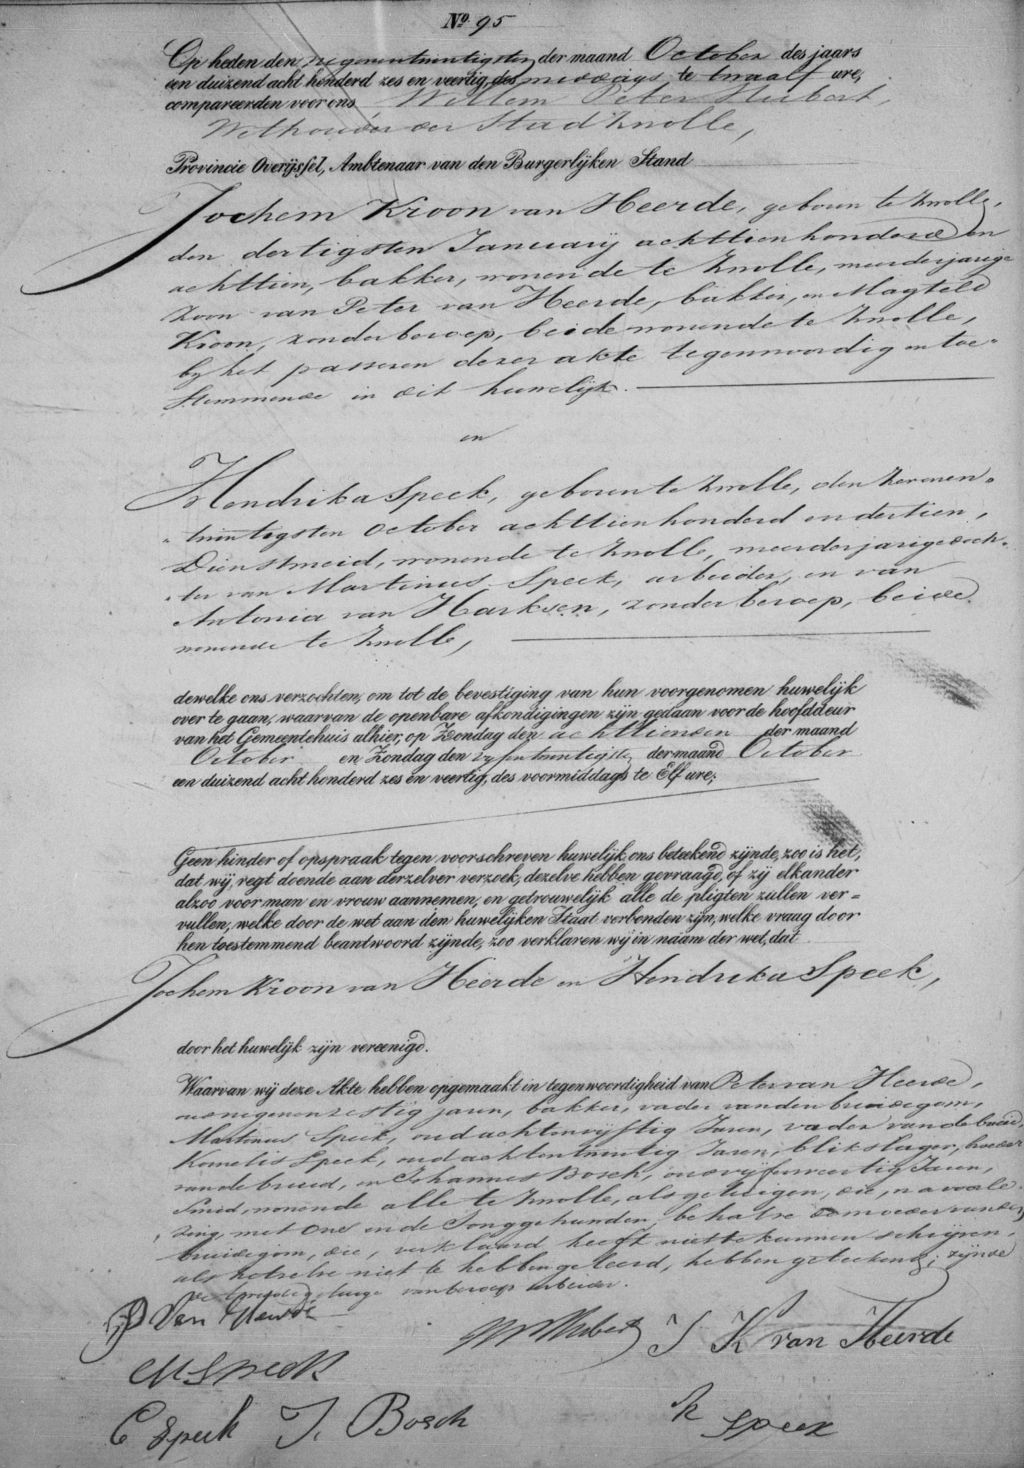 No. 95
Op heden den negenentwintigsten der maand October des jaars
een duizend acht honderd zes en veertig, des middags te twaalf ure,
compareerden voor ons Willem Peter Hubert,
Wethouder der Stad Zwolle,
Provincie Overijssel, Ambtenaar van den Burgerlijken Stand
Jochem Kroon van Heerde, geboren te Zwolle,
den dertigsten January achttienhonderd en
achttien, bakker, wonende te Zwolle, meerderjarige
Zoon van Peter van Heerde, bakker, en Magteld
Kroon, zonder beroep, beide wonende te Zwolle,
bij het passeren dezer akte tegenwoordig en toe=
stemmende in dit huwelijk.
en
Hendrika Speek, geboren te Zwolle, den zevenen=
twintigsten October achttienhonderd en dertien,
Dienstmeid, wonende te Zwolle, meerderjarige doch=
ter van Martinus Speek, arbeider, en van
Antonia van Harksen, zonder beroep, beide
wonende te Zwolle,
dewelke ons verzochten, om tot de bevestiging van hun voorgenomen huwelijk
over te gaan, waarvan de openbare afkondigingen zijn gedaan voor de hoofddeur
van het Gemeentehuis alhier, op Zondag den achttienden der maand
October en Zondag den vyfentwintigste der maand October
een duizend acht honderd zes en veertig, des voormiddags te Elf ure;
Geen hinder of opspraak tegen voorschreven huwelijk ons beteekend zijnde, zoo is het,
dat wij, regt doende aan derzelver verzoek, dezelve hebben gevraagd, of zij elkander
alzoo voor man en vrouw aannemen, en getrouwelijk alle de pligten zullen ver=
vullen, welke door de wet aan den huwelijken Staat verbonden zijn, welke vraag door
hen toestemmend beantwoord zijnde, zoo verklaren wij in naam der wet, dat
Jochem Kroon van Heerde en Hendrika Speek,
door het huwelijk zijn vereenigd.
Waarvan wij deze Akte hebben opgemaakt in tegenwoordigheid van Peter van Heerde,
oud negenenzestig jaren, bakker, vader van den bruidegom,
Martinus Speek, oud achtenvijftig Jaren, vader van de bruid,
Kornelis Speek, oud achtentwintig Jaren, blikslager, broeder
van de bruid, en Johannes Bosch, oud vijfenveertig Jaren,
Smid, wonende alle te Zwolle, als getuigen, die, na voorle=
zing, met ons en de Jonggehuwden, behalve de moeder van den
bruidegom, die, verklaard heeft niet te kunnen schrijven,
als hetzelve niet te hebben geleerd, hebben geteekend; zijnde
de tweede getuige van beroep arbeider.
P Van Heerde
WPHubert J K van Heerde
M Speek
C Speek J. Bosch
H Speek